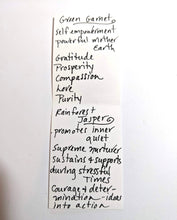 Green Garnet
self empowerment
powerful mother
Earth
Gratitude
Prosperity
Compassion
Love
Purity
Rainforest
Jasper
promotes inner
quiet
Supreme nurturer
sustains & supports
during stressful
Times
Courage & deter-
mination - ideas
into action